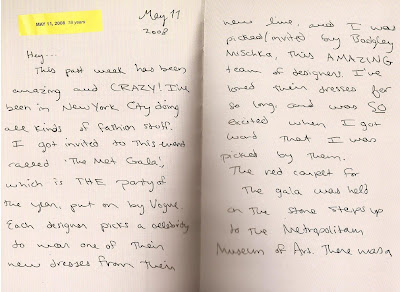 MAY 11, 2008 18 years
May 11
2008
Hey...
This past week has been
amazing and CRAZY! I've
been in New York City doing
all kinds of fashion stuff.
I got invited to this event
called 'The Met Gala',
which is THE party of
the year, put on by Vogue.
Each designer picks a celebrity
to wear one of their
new dresses from their
new line, and I was
picked (invited) by Badgley
Mischka, this AMAZING
team of designers. I've
loved their dresses for
so long, and was SO
excited when I got
word that I was
picked by them.
The red carpet for
the gala was held
on the stone steps up
to the Metropolitan
Museum of Art. There was a